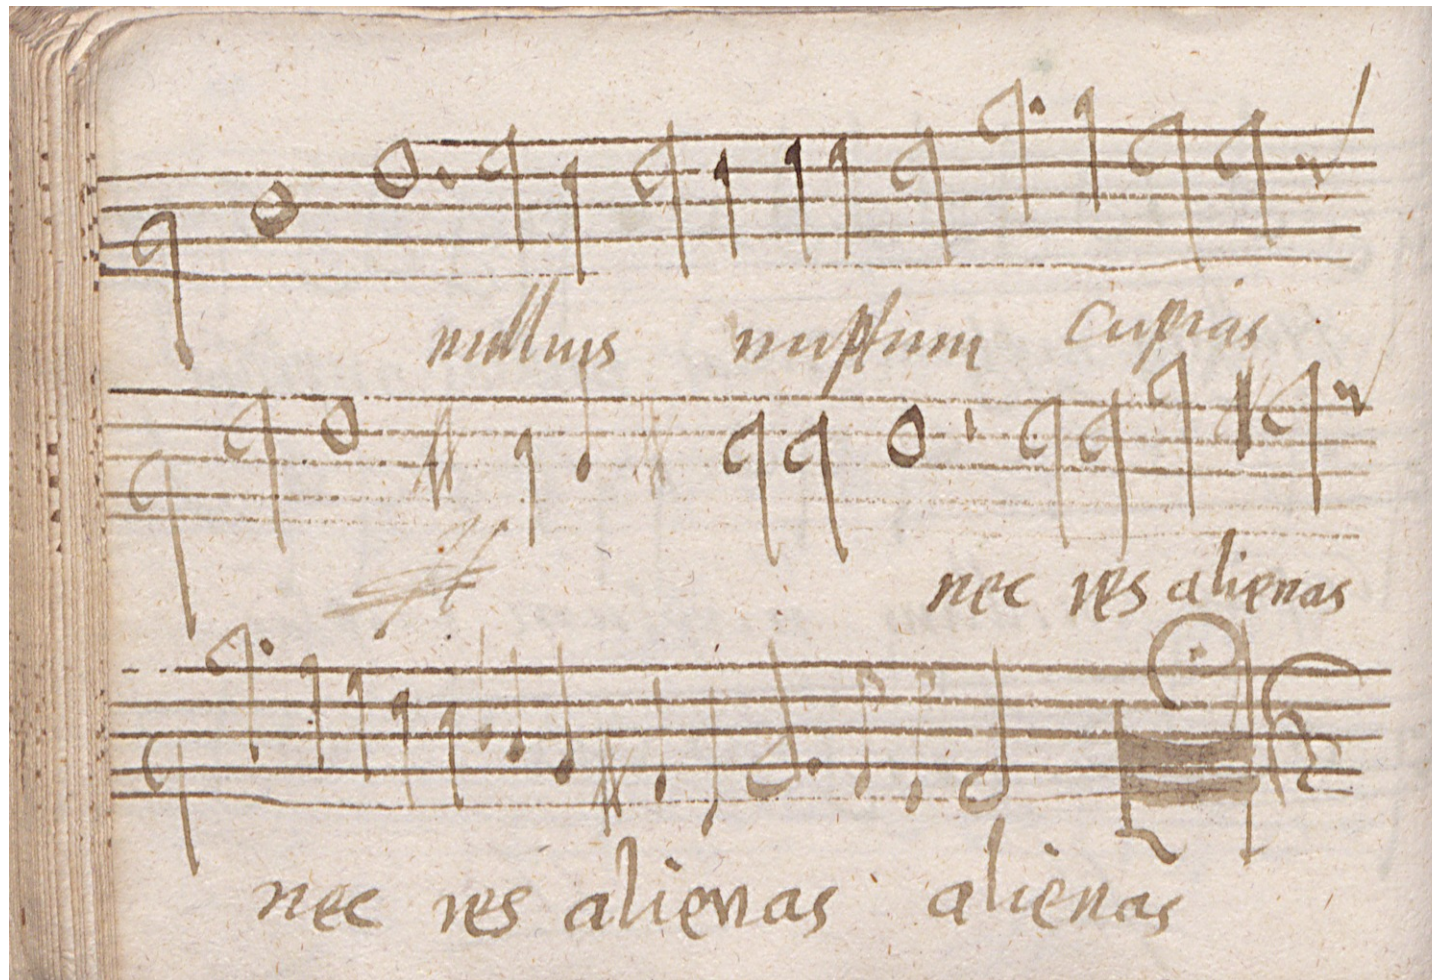 nullius nuptum Cupias
nec res alienas
nec res alienas alienas